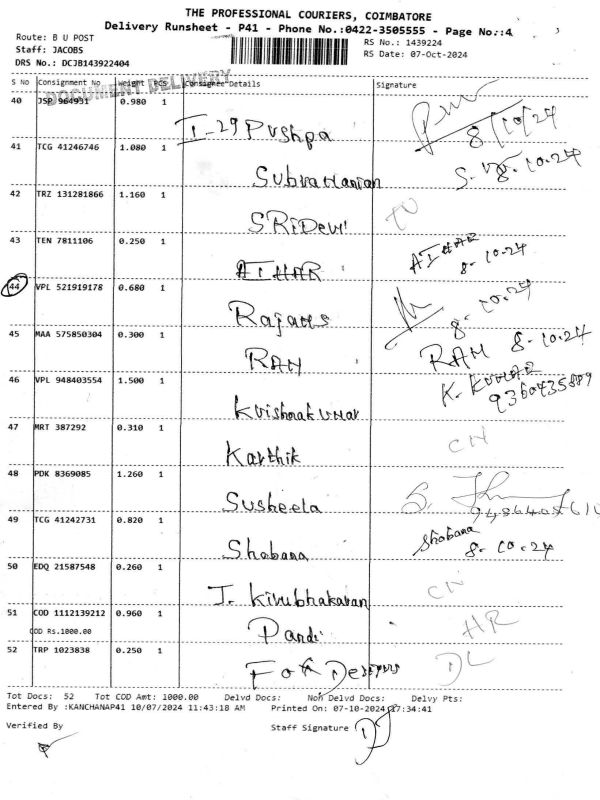 THE PROFESSIONAL COURIERS, COIMBATORE
Delivery Runsheet - P41 - Phone No.:0422-3505555 - Page No.:4
Route: B U POST
Staff: JACOBS
RS No.: 1439224
DRS No.: DCJB143922404
RS Date: 07-Oct-2024
DOCUMENT DELIVERY
S No Consignment No Weight Pcs Consignee Details Signature
40 JSP 964931 0.980 1
I-29 Pushpa 8/10/24
41 TCG 41246746 1.080 1
Subramanian S. 8.10.24
42 TRZ 131281866 1.160 1
SRiDevi
43 TEN 7811106 0.250 1
AIHAR AIHAR
8-10.24
44 VPL 521919178 0.680 1
8-10.24
45 MAA 575850304 0.300 1
RAM RAM 8-10.24
46 VPL 948403554 1.500 1
K. KUMAR
9360435889
Krishnakumar
47 MRT 387292 0.310 1
Karthik CN
48 PDK 8369085 1.260 1
Susheela
49 TCG 41242731 0.820 1
Shobana Shobana
8-10-24
50 EDQ 21587548 0.260 1
J. Kirubhakaran CN
51 COD 1112139212 0.960 1
COD Rs.1000.00
Pandi HR
52 TRP 1023838 0.250 1
DL
Tot Docs: 52 Tot COD Amt: 1000.00 Delvd Docs: Non Delvd Docs: Delvy Pts:
Entered By :KANCHANAP41 10/07/2024 11:43:18 AM Printed On: 07-10-2024 17:34:41
Verified By Staff Signature